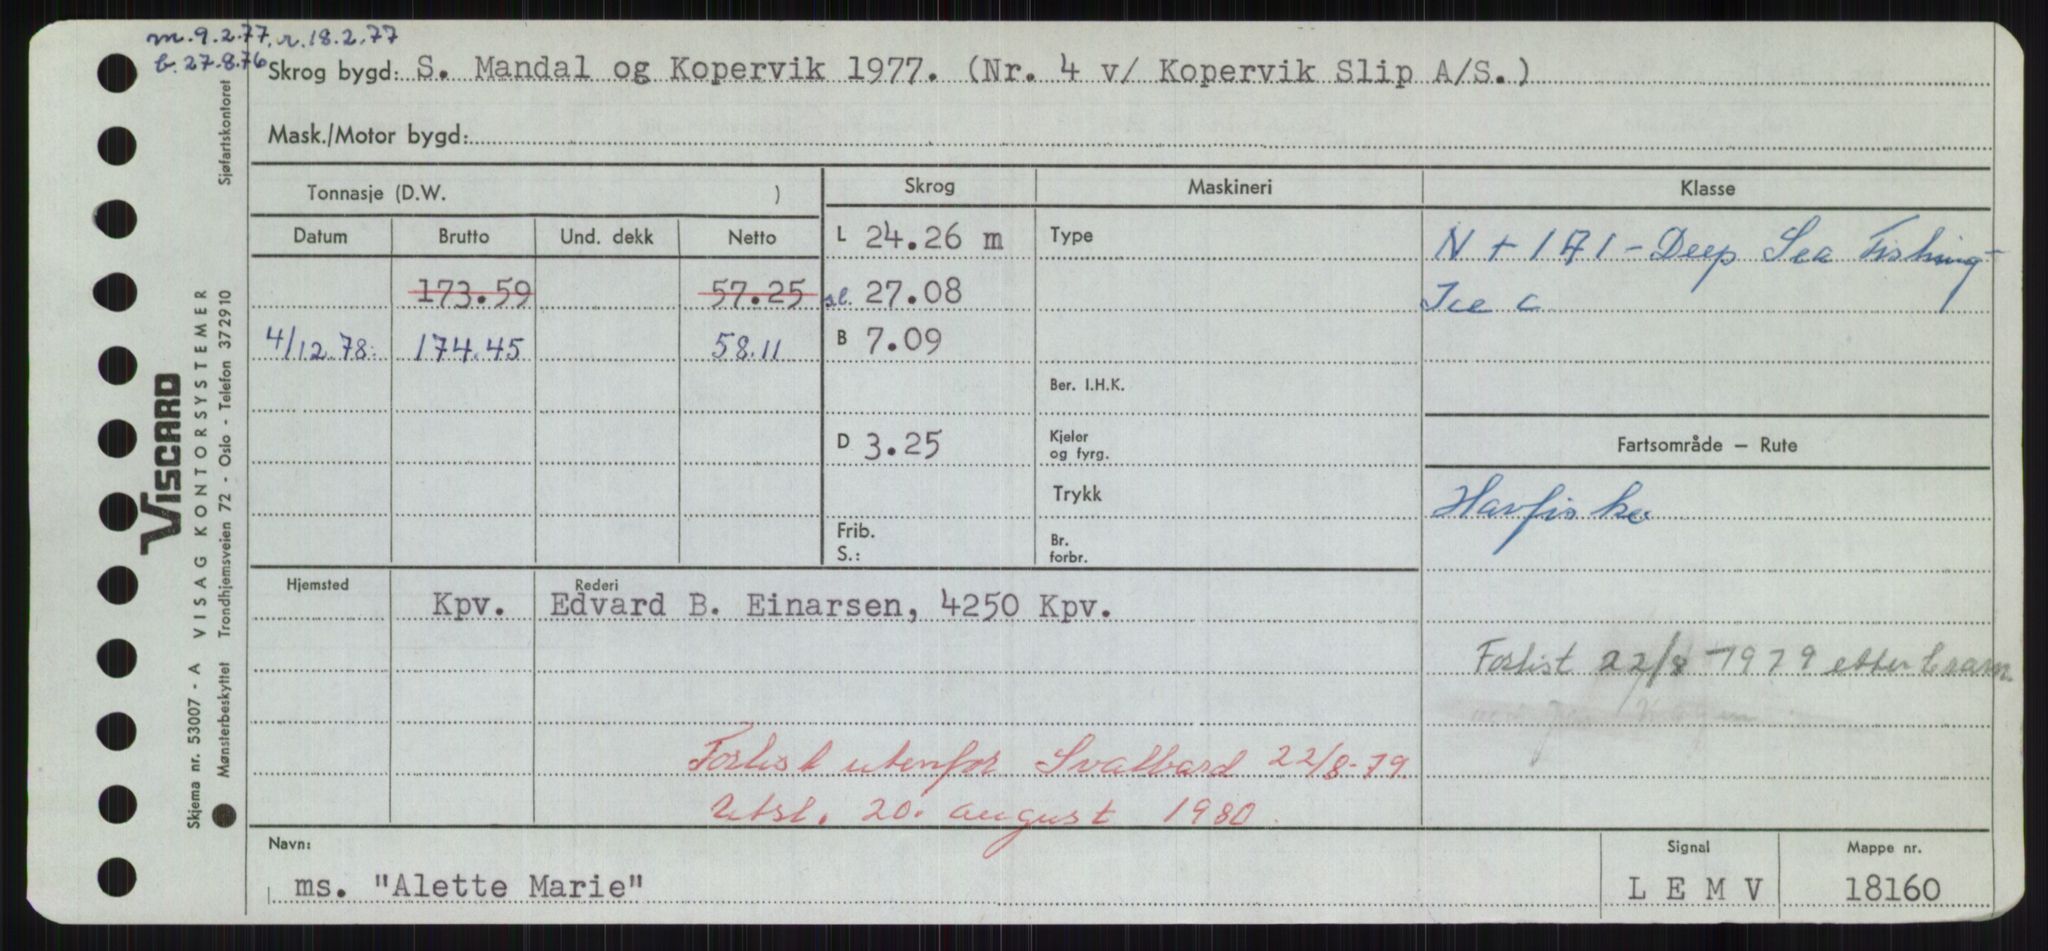 m. 9.2.77. r. 18.2.77
b. 27.8.76
Skrog bygd: S. Mandal og Kopervik 1977. (Nr. 4 v/ Kopervik Slip A/S.)
Mask./Motor bygd:
Tonnasje (D.W. )
Skrog
Maskineri
Klasse
Datum Brutto Und. dekk Netto
L 24.26 m
Type
N + 1A1 - Deep Sea Fishing -
173.59 57.25
sl. 27.08
Ice C
4/12.78. 174.45 58.11
B 7.09
Ber. I.H.K.
D 3.25
Kjeler
og fyrg.
Fartsområde — Rute
Trykk
Havfiske
Frib.
S.:
Br.
forbr.
Hjemsted
Rederi
Kpv. Edvard B. Einarsen, 4250 Kpv.
Forlist 22/8 - 1979 etter brann.
Forlist utenfor Svalbard 22/8-79.
Utsl. 20. august 1980.
Navn:
ms. "Alette Marie"
Signal
L E M V
Mappe nr.
18160
VISCARD
VISAG KONTORSYSTEMER
Skjema nr. 53007 - A
Sjøfartskontoret
Trondhjemsveien 72 - Oslo - Telefon 372910
Mønsterbeskyttet